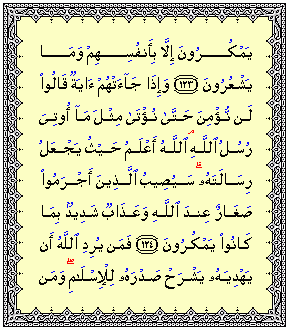 يَمْكُرُونَ إِلَّا بِأَنفُسِهِمْ وَمَا
يَشْعُرُونَ ﴿١٢٣﴾ وَإِذَا جَآءَتْهُمْ ءَايَةٌ قَالُوا۟
لَن نُّؤْمِنَ حَتَّىٰ نُؤْتَىٰ مِثْلَ مَآ أُوتِىَ
رُسُلُ ٱللَّهِ ۘ ٱللَّهُ أَعْلَمُ حَيْثُ يَجْعَلُ
رِسَالَتَهُۥ ۗ سَيُصِيبُ ٱلَّذِينَ أَجْرَمُوا۟
صَغَارٌ عِندَ ٱللَّهِ وَعَذَابٌ شَدِيدٌۢ بِمَا
كَانُوا۟ يَمْكُرُونَ ﴿١٢٤﴾ فَمَن يُرِدِ ٱللَّهُ أَن
يَهْدِيَهُۥ يَشْرَحْ صَدْرَهُۥ لِلْإِسْلَـٰمِ ۖ وَمَن